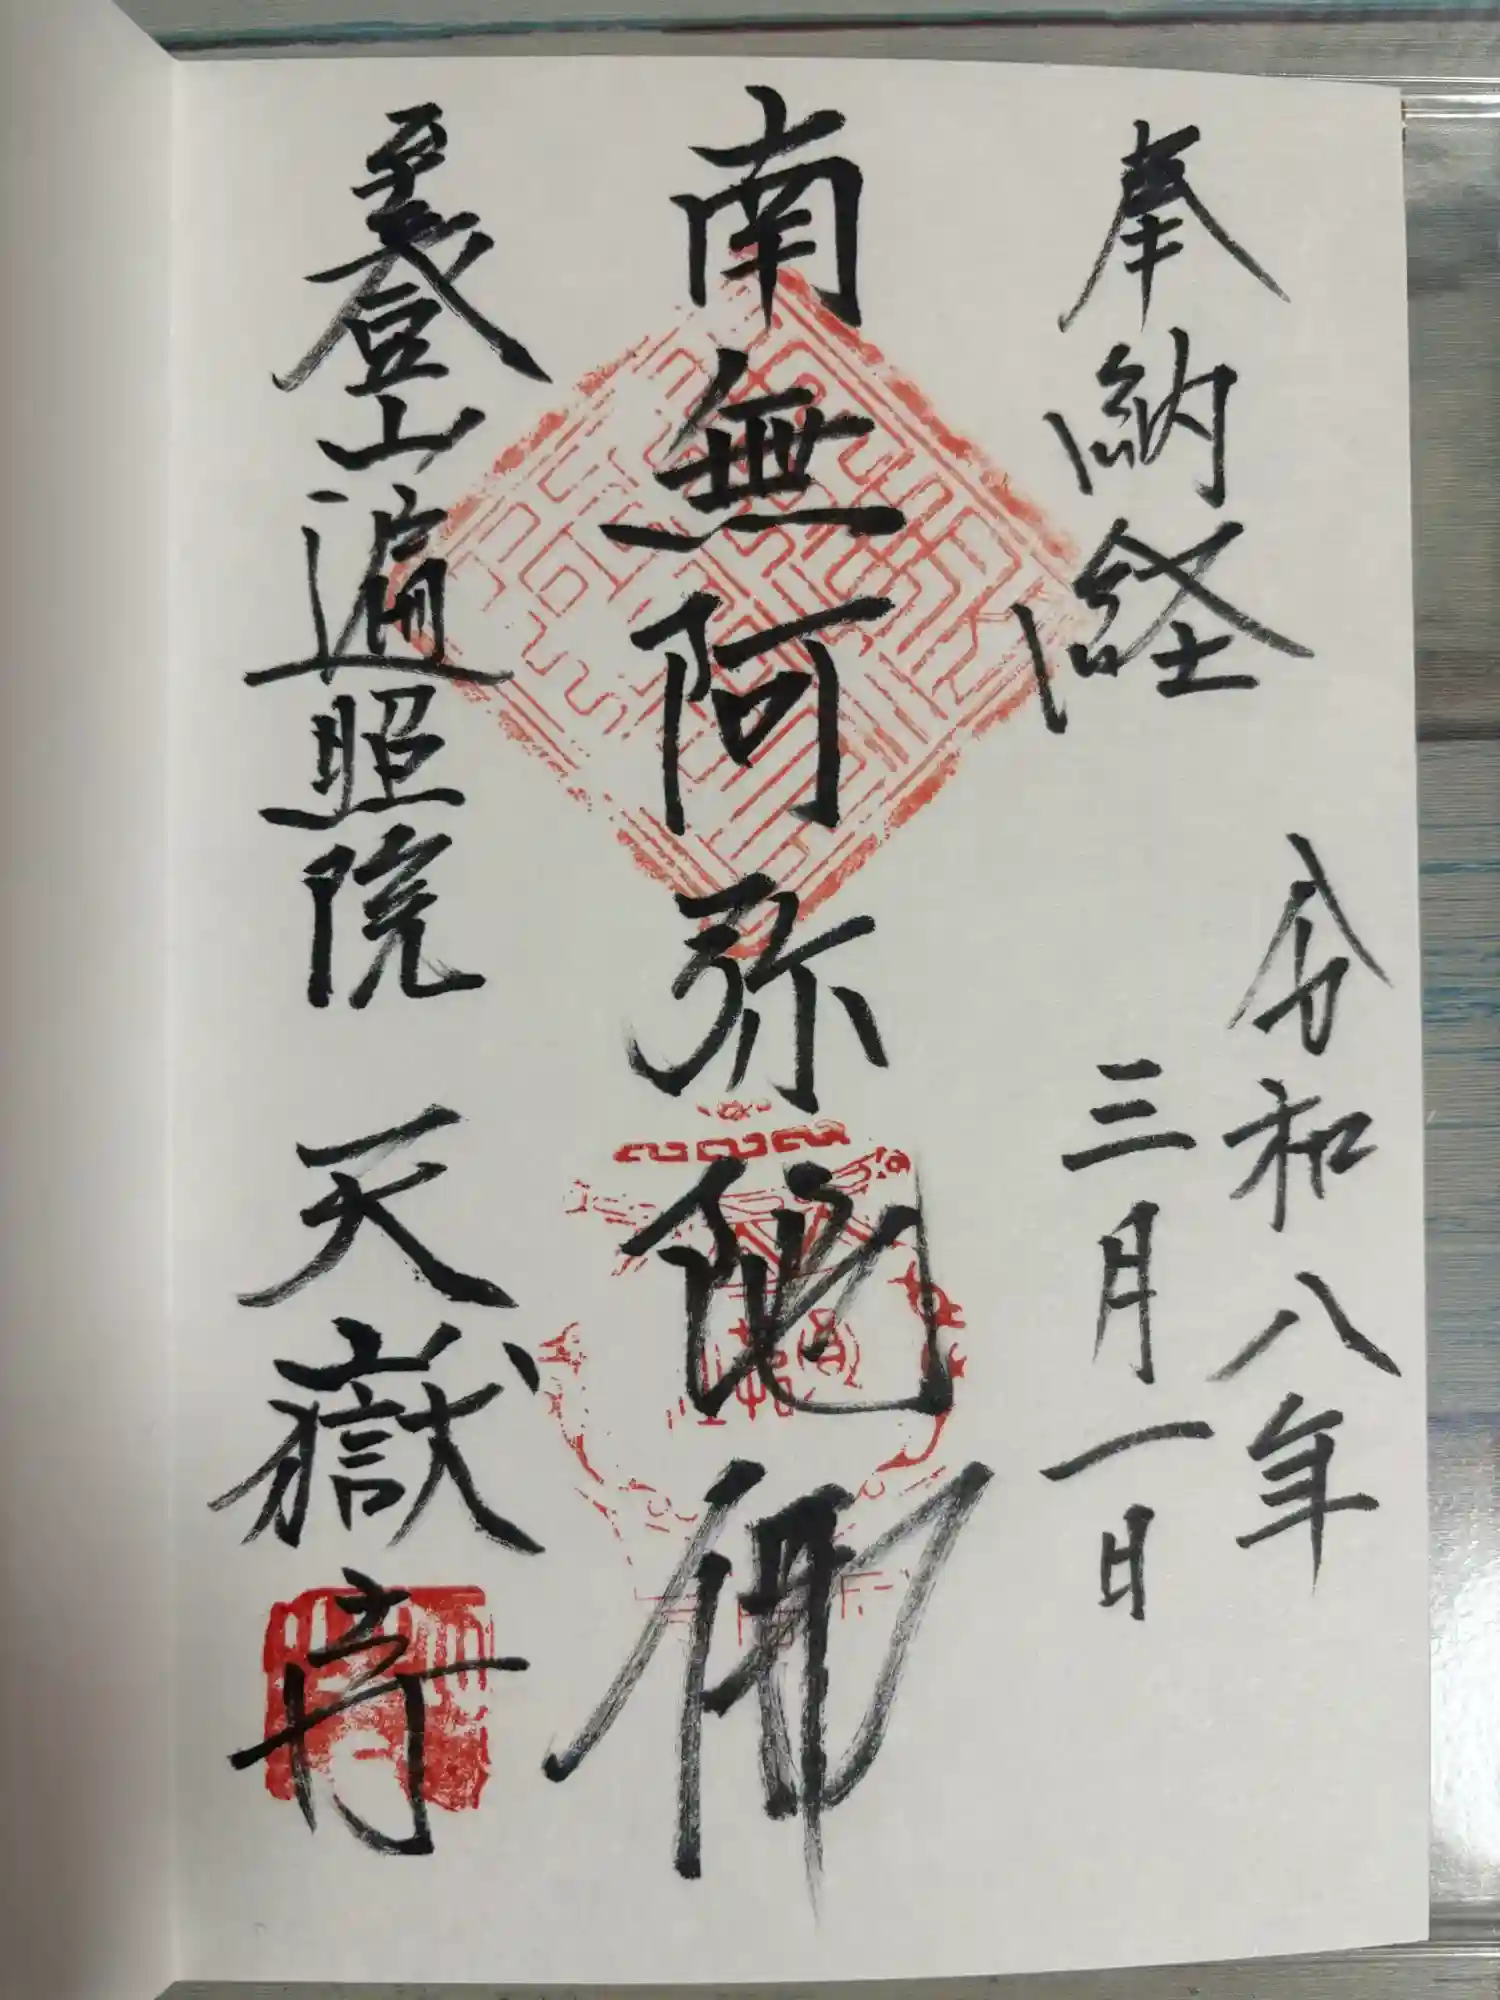 奉納経
令和八年
三月一日
南無阿弥陀佛
至登山遍照院 天嶽寺